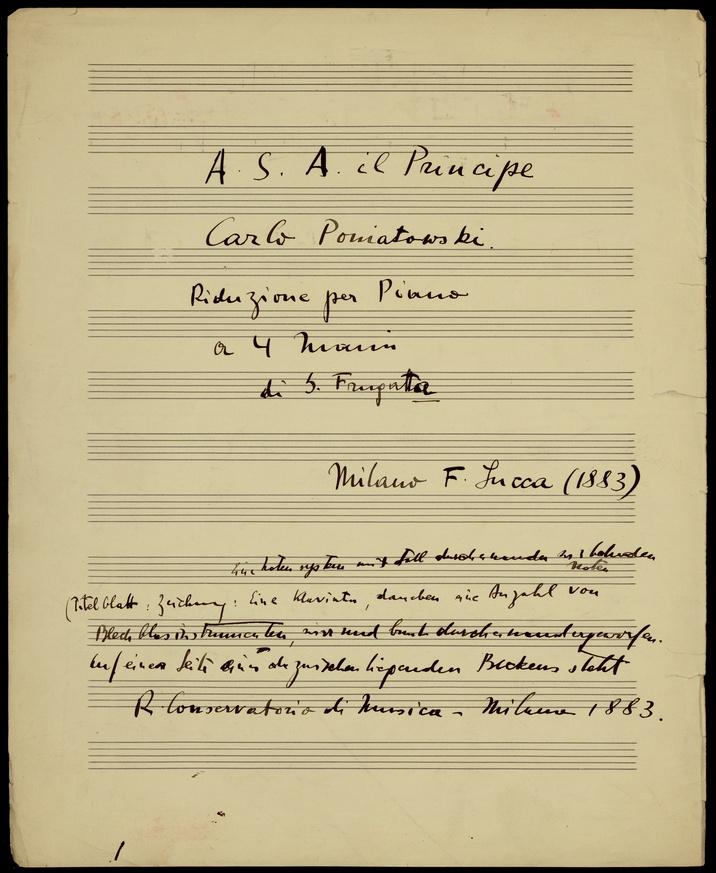 A. S. A. il Principe
Carlo Poniatowski.
Riduzione per Piano
a 4 mani
di G. Frugatta
Milano F. Lucca (1883)
Ein Notensystem mit toll durcheinander
Noten
(Titelblatt: Zeichnung: Eine Klaviatur, daneben eine Anzahl von
Blechblasinstrumenten, wirr und bunt durcheinandergeworfen.
Auf einer Seite eines dazwischen liegenden Beckens steht
R. Conservatorio di Musica – Milano 1883.
1